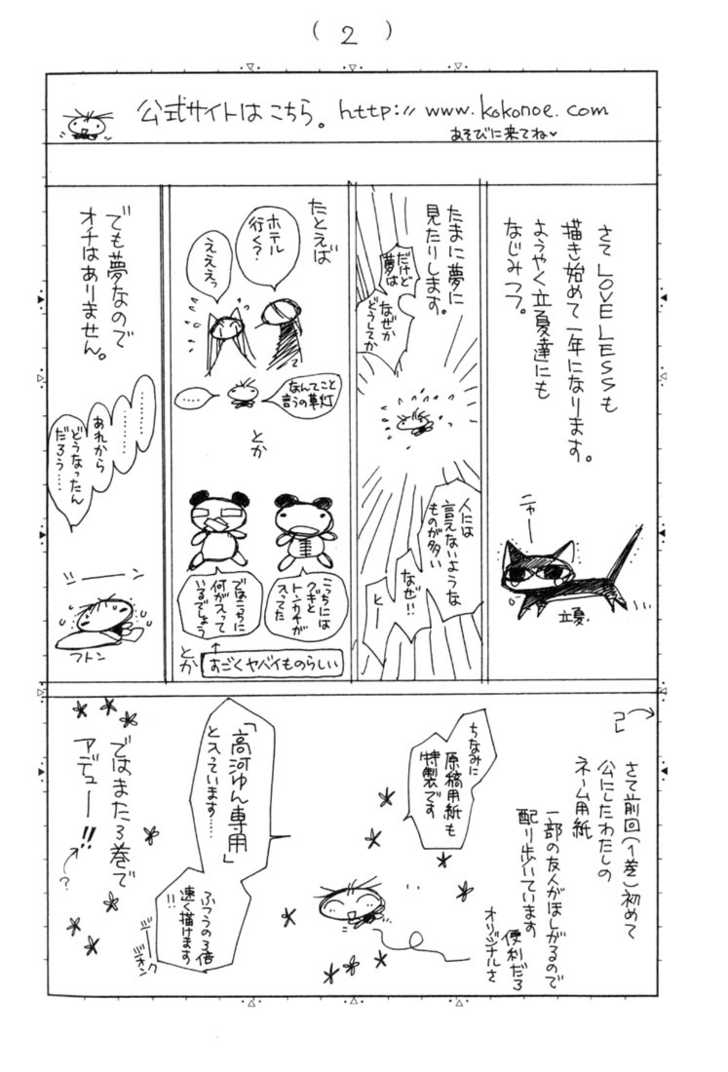 (2)
公式サイトはこちら。 http://www.kokonoe.com
あそびに来てね♥
さてLOVELESSも
描き始めて一年になります。
ようやく立夏達にも
なじみつつ。
ニャー
立夏
たまに夢に
見たりします。
だけど
夢は
なぜか
どうしてか
人には
言えないような
ものが多い
なぜ!!
たとえば
ホテル
行く?
えええっ
なんてこと
言うの草灯
……
とか
こっちには
クギと
トンカチが
入ってた
ではこっちに
何が入って
いるでしょう
↑
すごくヤバイものらしい
とか
でも夢なので
オチはありません。
………
……
あれから
どうなったん
だろう…
ジーーン
フトン
さて前回(1巻)初めて
公にしたわたしの
ネーム用紙
コレ→
一部の友人がほしがるので
配り歩いています
便利だろ
オリジナルさ
ちなみに
原稿用紙も
特製です
「高河ゆん専用」
と入っています……
ふつうの3倍
速く描けます
!!
ではまた3巻で
アデュー!!
?